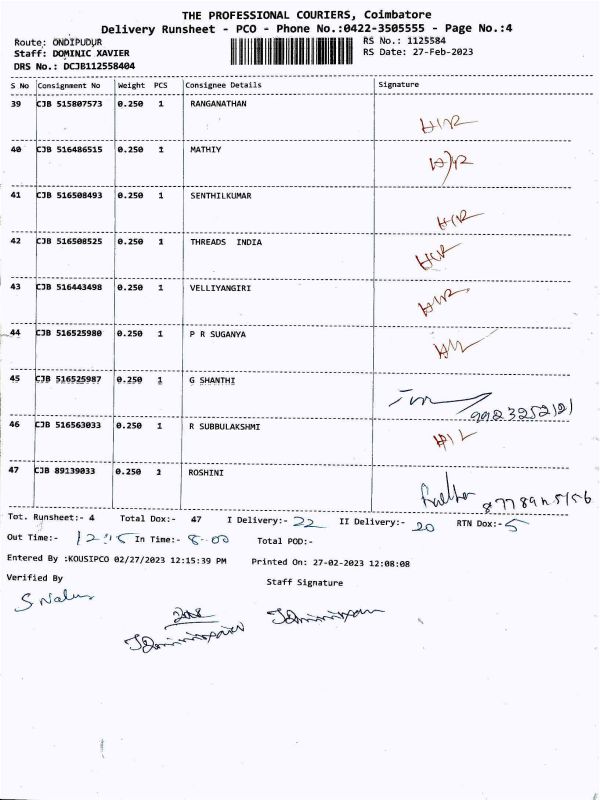 THE PROFESSIONAL COURIERS, Coimbatore
Delivery Runsheet - PCO - Phone No.:0422-3505555 - Page No.:4
Route: ONDIPUDUR
RS No.: 1125584
Staff: DOMINIC XAVIER
RS Date: 27-Feb-2023
DRS No.: DCJB112558404
S No Consignment No Weight PCS Consignee Details Signature
39 CJB 515807573 0.250 1 RANGANATHAN
40 CJB 516486515 0.250 1 MATHIY
41 CJB 516508493 0.250 1 SENTHILKUMAR
42 CJB 516508525 0.250 1 THREADS INDIA
43 CJB 516443498 0.250 1 VELLIYANGIRI
44 CJB 516525980 0.250 1 P R SUGANYA
45 CJB 516525987 0.250 1 G SHANTHI
46 CJB 516563033 0.250 1 R SUBBULAKSHMI
47 CJB 89139033 0.250 1 ROSHINI
Tot. Runsheet:- 4 Total Dox:- 47 I Delivery:- 22 II Delivery:- 20 RTN Dox:- 5
Out Time:- 12:15 In Time:- 8-00 Total POD:-
Entered By :KOUSIPCO 02/27/2023 12:15:39 PM Printed On: 27-02-2023 12:08:08
Verified By
Staff Signature